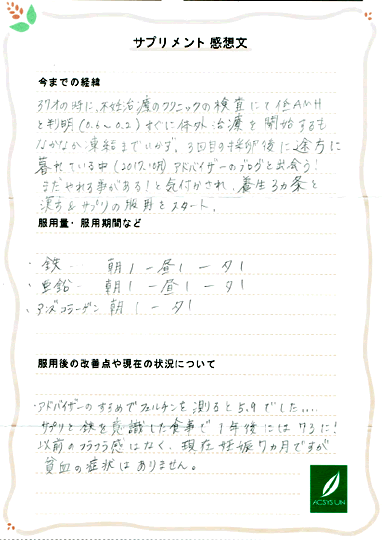 サプリメント 感想文
今までの経緯
37才の時に、不妊治療のクリニックの検査にて低AMH
と判明(0.6〜0.2)すぐに体外治療を開始するも
なかなか凍結までいかず。3回目の採卵後に途方に
暮せている中(2017.10月)アドバイザーのブログと出会う!
まだやれる事がある!と気付かされ、養生3カ条と
漢方&サプリの服用をスタート。
服用量・服用期間など
・鉄 - 朝1 - 昼1 - 夕1
・亜鉛 - 朝1 - 昼1 - 夕1
・アンズコラーゲン 朝1 - 夕1
服用後の改善点や現在の状況について
アドバイザーのすすめでフェルチンを測ると5.9でした...
サプリと鉄を意識した食事で1年後には73に!
以前のフラフラ感はなく、現在妊娠7カ月ですが
貧血の症状はありません。
ACSYSUN